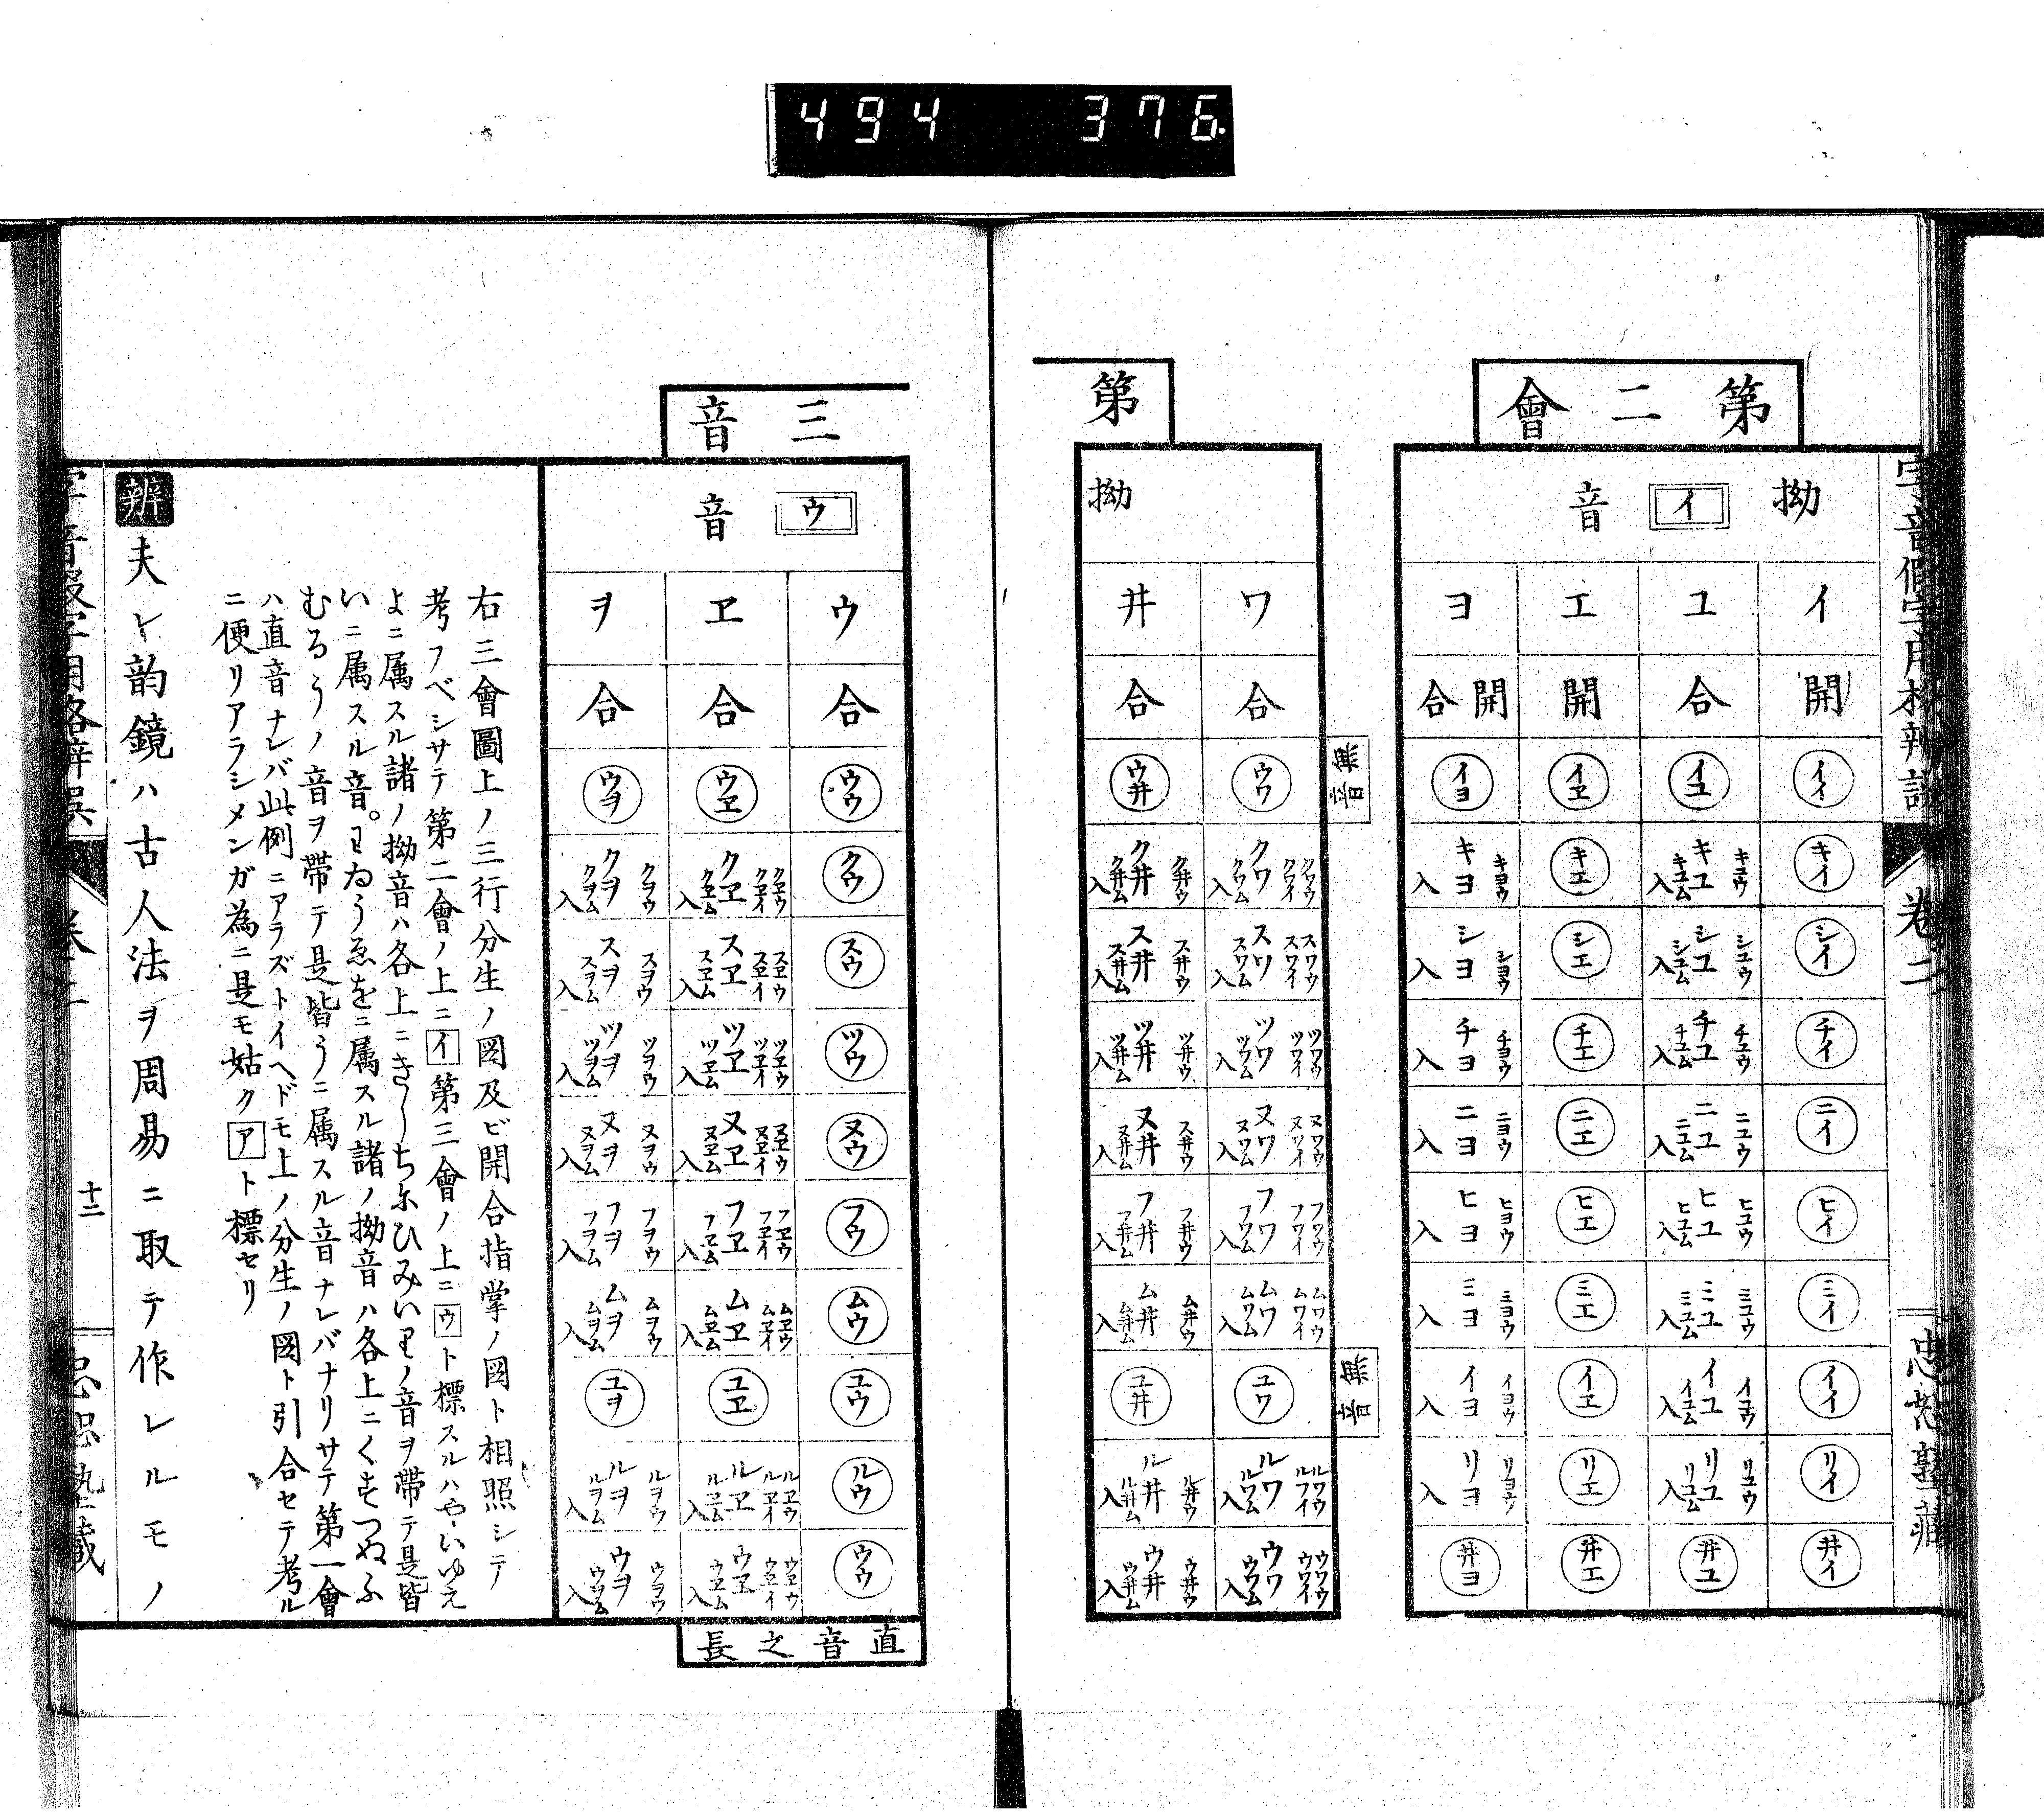 494 376
卷二
忠恕塾藏
第二會
拗イ音
イ 開 イイ キイ シイ チイ ニイ ヒイ ミイ イイ リイ 井イ
ユ 合 イユ キユウ キユ キユム入 シユウ シユ シユム入 チユウ チユ チユム入 ニユウ ニユ ニユム入 ヒユウ ヒユ ヒユム入 ミユウ ミユ ミユム入 イユ イユム入 リユウ リユ リユム入 井ユ
エ 開 イヱ キエ シエ チエ ニエ ヒエ ミエ イヱ リエ 井エ
ヨ 開合 イヨ キヨウ キヨ入 シヨウ シヨ入 チヨウ チヨ入 ニヨウ ニヨ入 ヒヨウ ヒヨ入 ミヨウ ミヨ入 イヨウ イヨ入 リヨウ リヨ入 井ヨ
無音
無音
第三音
拗ウ音
ワ 合 ウワ クワウ クワイ クワ クワム入 スワウ スワイ スワ スワム入 ツワウ ツワイ ツワ ツワム入 ヌワウ ヌワイ ヌワ ヌワム入 フワウ フワイ フワ フワム入 ムワウ ムワイ ムワ ムワム入 ユワ ルワウ ルワイ ルワ ルワム入 ウワウ ウワイ ウワ ウワム入
井 合 ウ井 ク井ウ ク井 ク井ム入 ス井ウ ス井 ス井ム入 ツ井ウ ツ井 ツ井ム入 ス井ウ ヌ井 ヌ井ム入 フ井ウ フ井 フ井ム入 ム井ウ ム井 ム井ム入 ユ井 ル井ウ ル井 ル井ム入 ウ井ウ ウ井 ウ井ム入
ウ 合 ウウ クウ スウ ツウ ヌウ フウ ムウ ユウ ルウ ウウ
ヱ 合 ウヱ クヱウ クヱイ クヱ クヱム入 スヱウ スヱイ スヱ スヱム入 ツヱウ ツヱイ ツヱ ツヱム入 ヌヱウ ヌヱイ ヌヱ ヌヱム入 フヱウ フヱイ フヱ フヱム入 ムヱウ ムヱイ ムヱ ムヱム入 ユヱ ルヱウ ルヱイ ルヱ ルヱム入 ウヱウ ウヱイ ウヱ ウヱム入
ヲ 合 ウヲ クヲウ クヲ クヲム入 スヲウ スヲ スヲム入 ツヲウ ツヲ ツヲム入 ヌヲウ ヌヲ ヌヲム入 フヲウ フヲ フヲム入 ムヲウ ムヲ ムヲム入 ユヲ ルヲウ ルヲ ルヲム入 ウヲウ ウヲ ウヲム入
直音之長
右三會圖上ノ三行分生ノ図及ビ開合指掌ノ図ト相照シテ
考フベシサテ第二會ノ上ニイ第三會ノ上ニウト標スルハやいゆえ
よニ属スル諸ノ拗音ハ各上ニきしちにひみいりノ音ヲ帶テ是皆
いニ属スル音。わゐうゑをニ属スル諸ノ拗音ハ各上ニくすつぬふ
むるうノ音ヲ帶テ是皆うニ属スル音ナレバナリサテ第一會
ハ直音ナレバ此例ニアラズトイヘドモ上ノ分生ノ図ト引合セテ考ル
ニ便リアラシメンガ為ニ是モ姑クアト標セリ
辨夫レ韵鏡ハ古人法ヲ周易ニ取テ作レルモノ
字音假字用格辨誤
十二